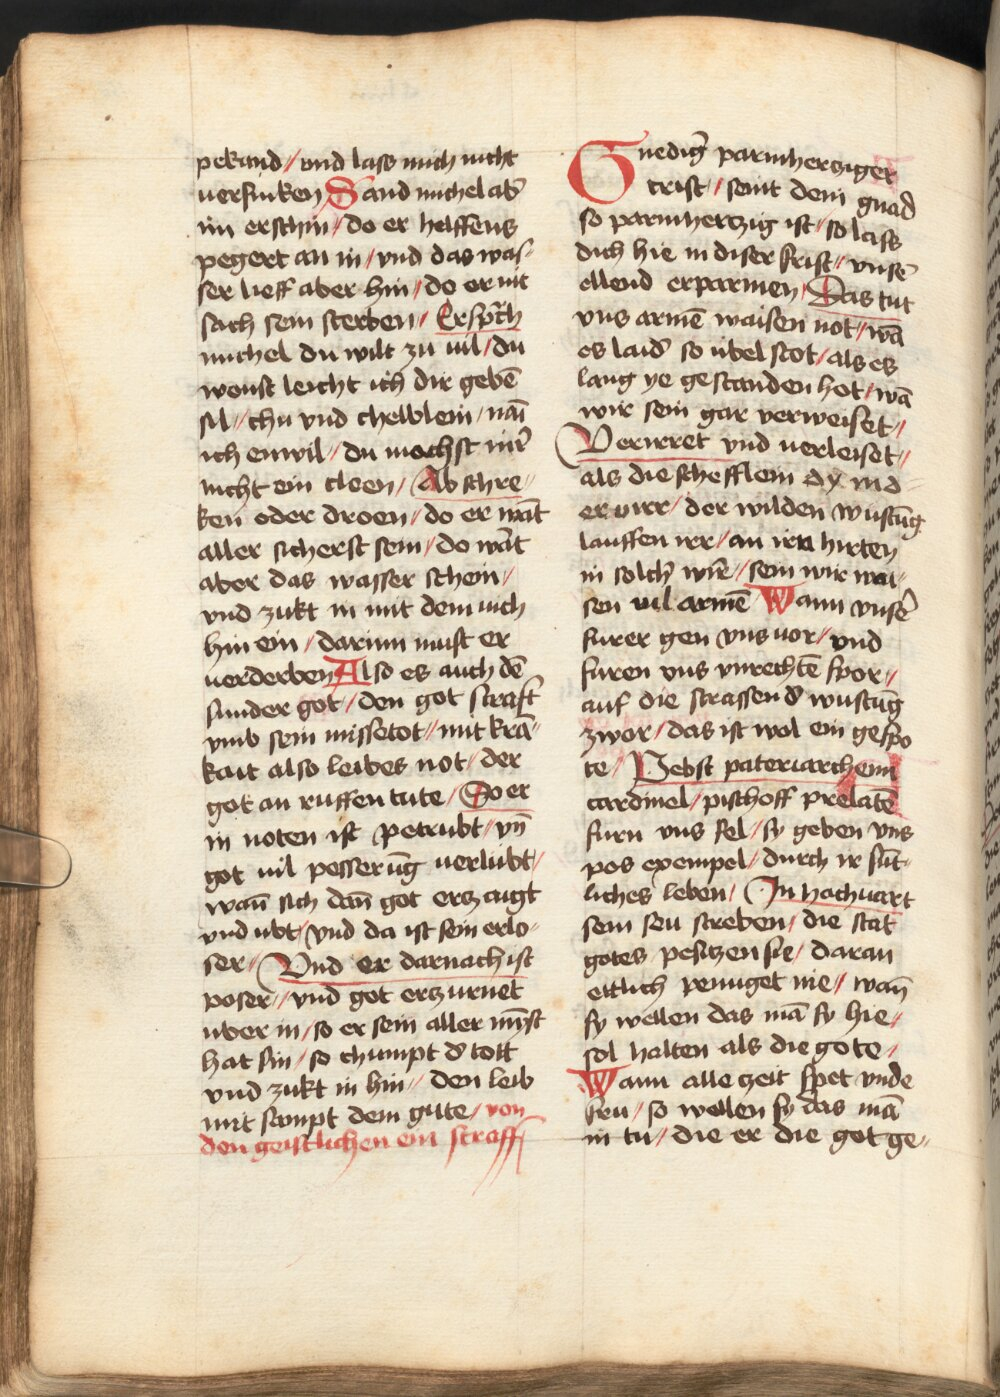 pekand // und lass mich nicht
versinken / Sand michel ab̄
im erschin / do er helffens
pegert an in / vnd das was-
ser lieff aber hin / do er nit
sach sein sterben / Er sp̄ch
michel du wilt zu vil / du
wenst leicht ich dir gebē
vil / chu vnd chelblein / nai
ich enwil / du mochst mir̄
nicht ein cleen / Ab schre-
ken oder droen / do er wāt
aller sicherst sein / do wāt
aber das wasser schein /
vnd zukt in mit dem vich
hin ein / darinn must er
verderben Also es auch dē
sunder got / den got straft
vmb sein missetot // mit krā-
kait also leibes not / der
got an ruffen tute / So er
in noten ist petrubt / vn̄
got vil pesserūg verlubt /
wan̄ sich dan̄ got erzaigt
vnd vbt / vnd da ist sein erlo-
ser / Vnd er darnach ist
poser // vnd got erzurnet
vber in / so er sein aller mȳst
hat sin / so chumpt d̄ tott
vnd zukt in hin // den leib
mit sampt dem gute / von
den geistlichen ein straff
Gnediḡ parmhercziger
crist / seint dein gnad
so parmhertzig ist / so lass
dich hie in diser frist // vnsē
ellend erparmen / Das tut
vns armē waisen not / wā
es laid̄ so ubel stot / als es
lang ye gestanden hot / wā
wir sein gar verweiset //
Verirret vnd verleiset //
als die schefflein dy in d-
er virr / der wilden wustūg
lauffen irr / an irn hirten
in solch̄ wir̄ // sein wir wai-
sen vil armē Wann vnsē
furer gen vns vor / vnd
furen vns vnrechtē spor //
auf die strassen d̄ wustūg
zwor / das ist wol ein gespo
te / Pebst pateriarchenn
cardinel / pischoff prelatē
furn vns fel / sy geben vns
pos exempel / durch ir sūt-
liches leben / In hochuart
sein seu streben / die stat
gotes pesitzen sie / daran
ettlich penuget nie // wan̄
sy wellen das mā sy hie /
sol halten als die gote /
Wann alle zeit spet vnde
fru / so wellen sy das mā
in tu // die er die got ge-